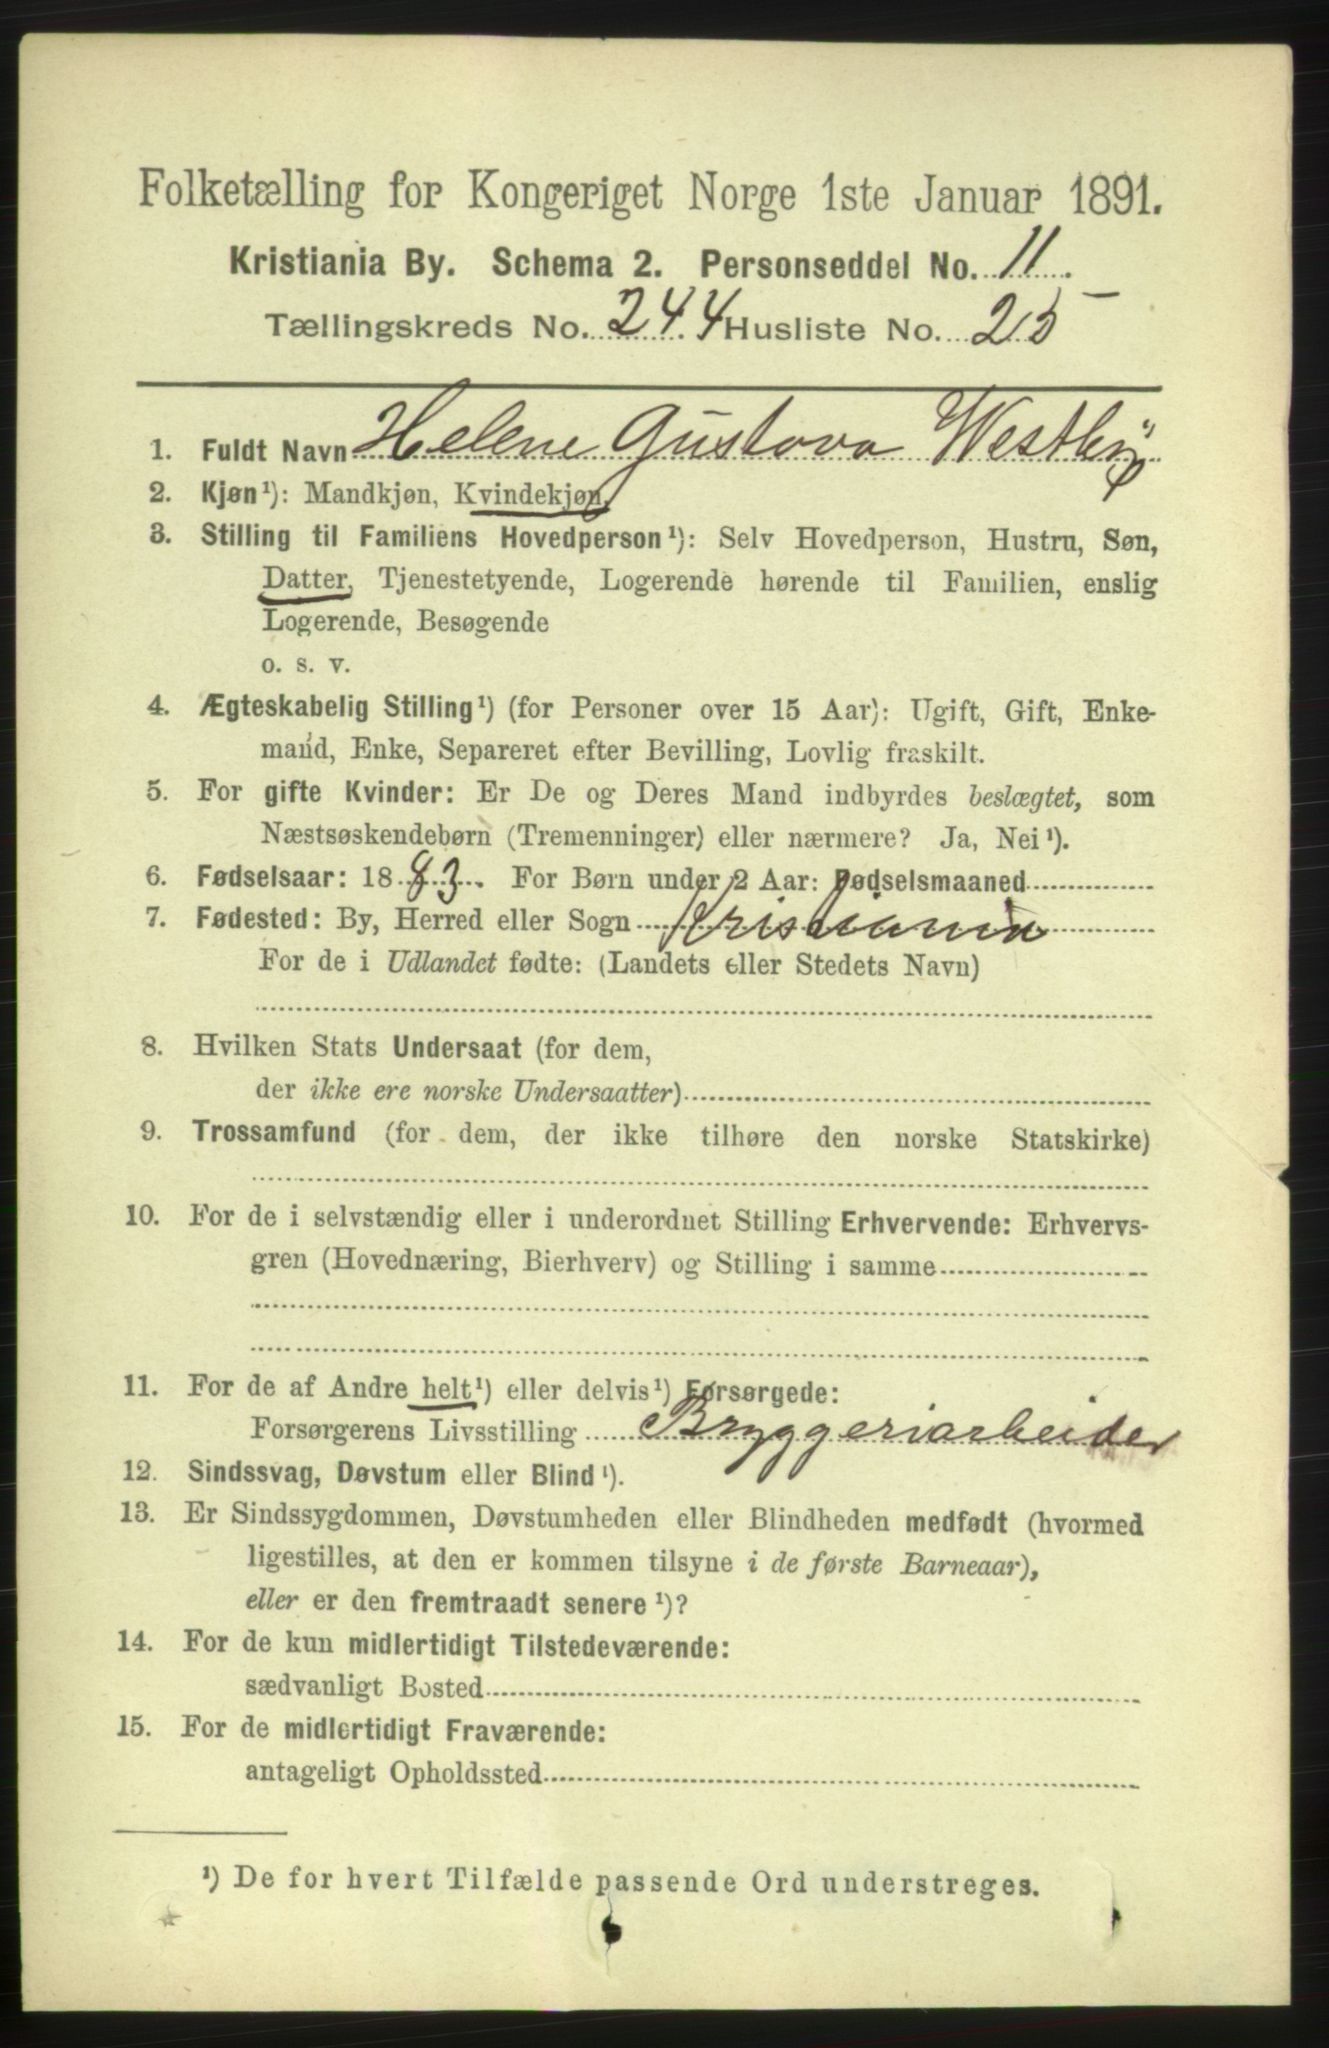 Folketælling for Kongeriget Norge 1ste Januar 1891.
Kristiania By. Schema 2. Personseddel No. 11.
Tællingskreds No. 244 Husliste No. 25
1. Fuldt Navn Helene Gustava Westby
2. Kjøn¹): Mandkjøn, Kvindekjøn.
3. Stilling til Familiens Hovedperson¹): Selv Hovedperson, Hustru, Søn,
Datter, Tjenestetyende, Logerende hørende til Familien, enslig
Logerende, Besøgende
o. s. v.
4. Ægteskabelig Stilling¹) (for Personer over 15 Aar): Ugift, Gift, Enke-
mand, Enke, Separeret efter Bevilling, Lovlig fraskilt.
5. For gifte Kvinder: Er De og Deres Mand indbyrdes beslægtet, som
Næstsøskendebørn (Tremenninger) eller nærmere? Ja, Nei¹).
6. Fødselsaar: 1883. For Børn under 2 Aar: Fødselsmaaned
7. Fødested: By, Herred eller Sogn Kristiania
For de i Udlandet fødte: (Landets eller Stedets Navn)
8. Hvilken Stats Undersaat (for dem,
der ikke ere norske Undersaatter)
9. Trossamfund (for dem, der ikke tilhøre den norske Statskirke)
10. For de i selvstændig eller i underordnet Stilling Erhvervende: Erhvervs-
gren (Hovednæring, Bierhverv) og Stilling i samme
11. For de af Andre helt¹) eller delvis¹) Forsørgede:
Forsørgerens Livsstilling Bryggeriarbeider
12. Sindssvag, Døvstum eller Blind¹).
13. Er Sindssygdommen, Døvstumheden eller Blindheden medfødt (hvormed
ligestilles, at den er kommen tilsyne i de første Barneaar),
eller er den fremtraadt senere¹)?
14. For de kun midlertidigt Tilstedeværende:
sædvanligt Bosted
15. For de midlertidigt Fraværende:
antageligt Opholdssted
¹) De for hvert Tilfælde passende Ord understreges.